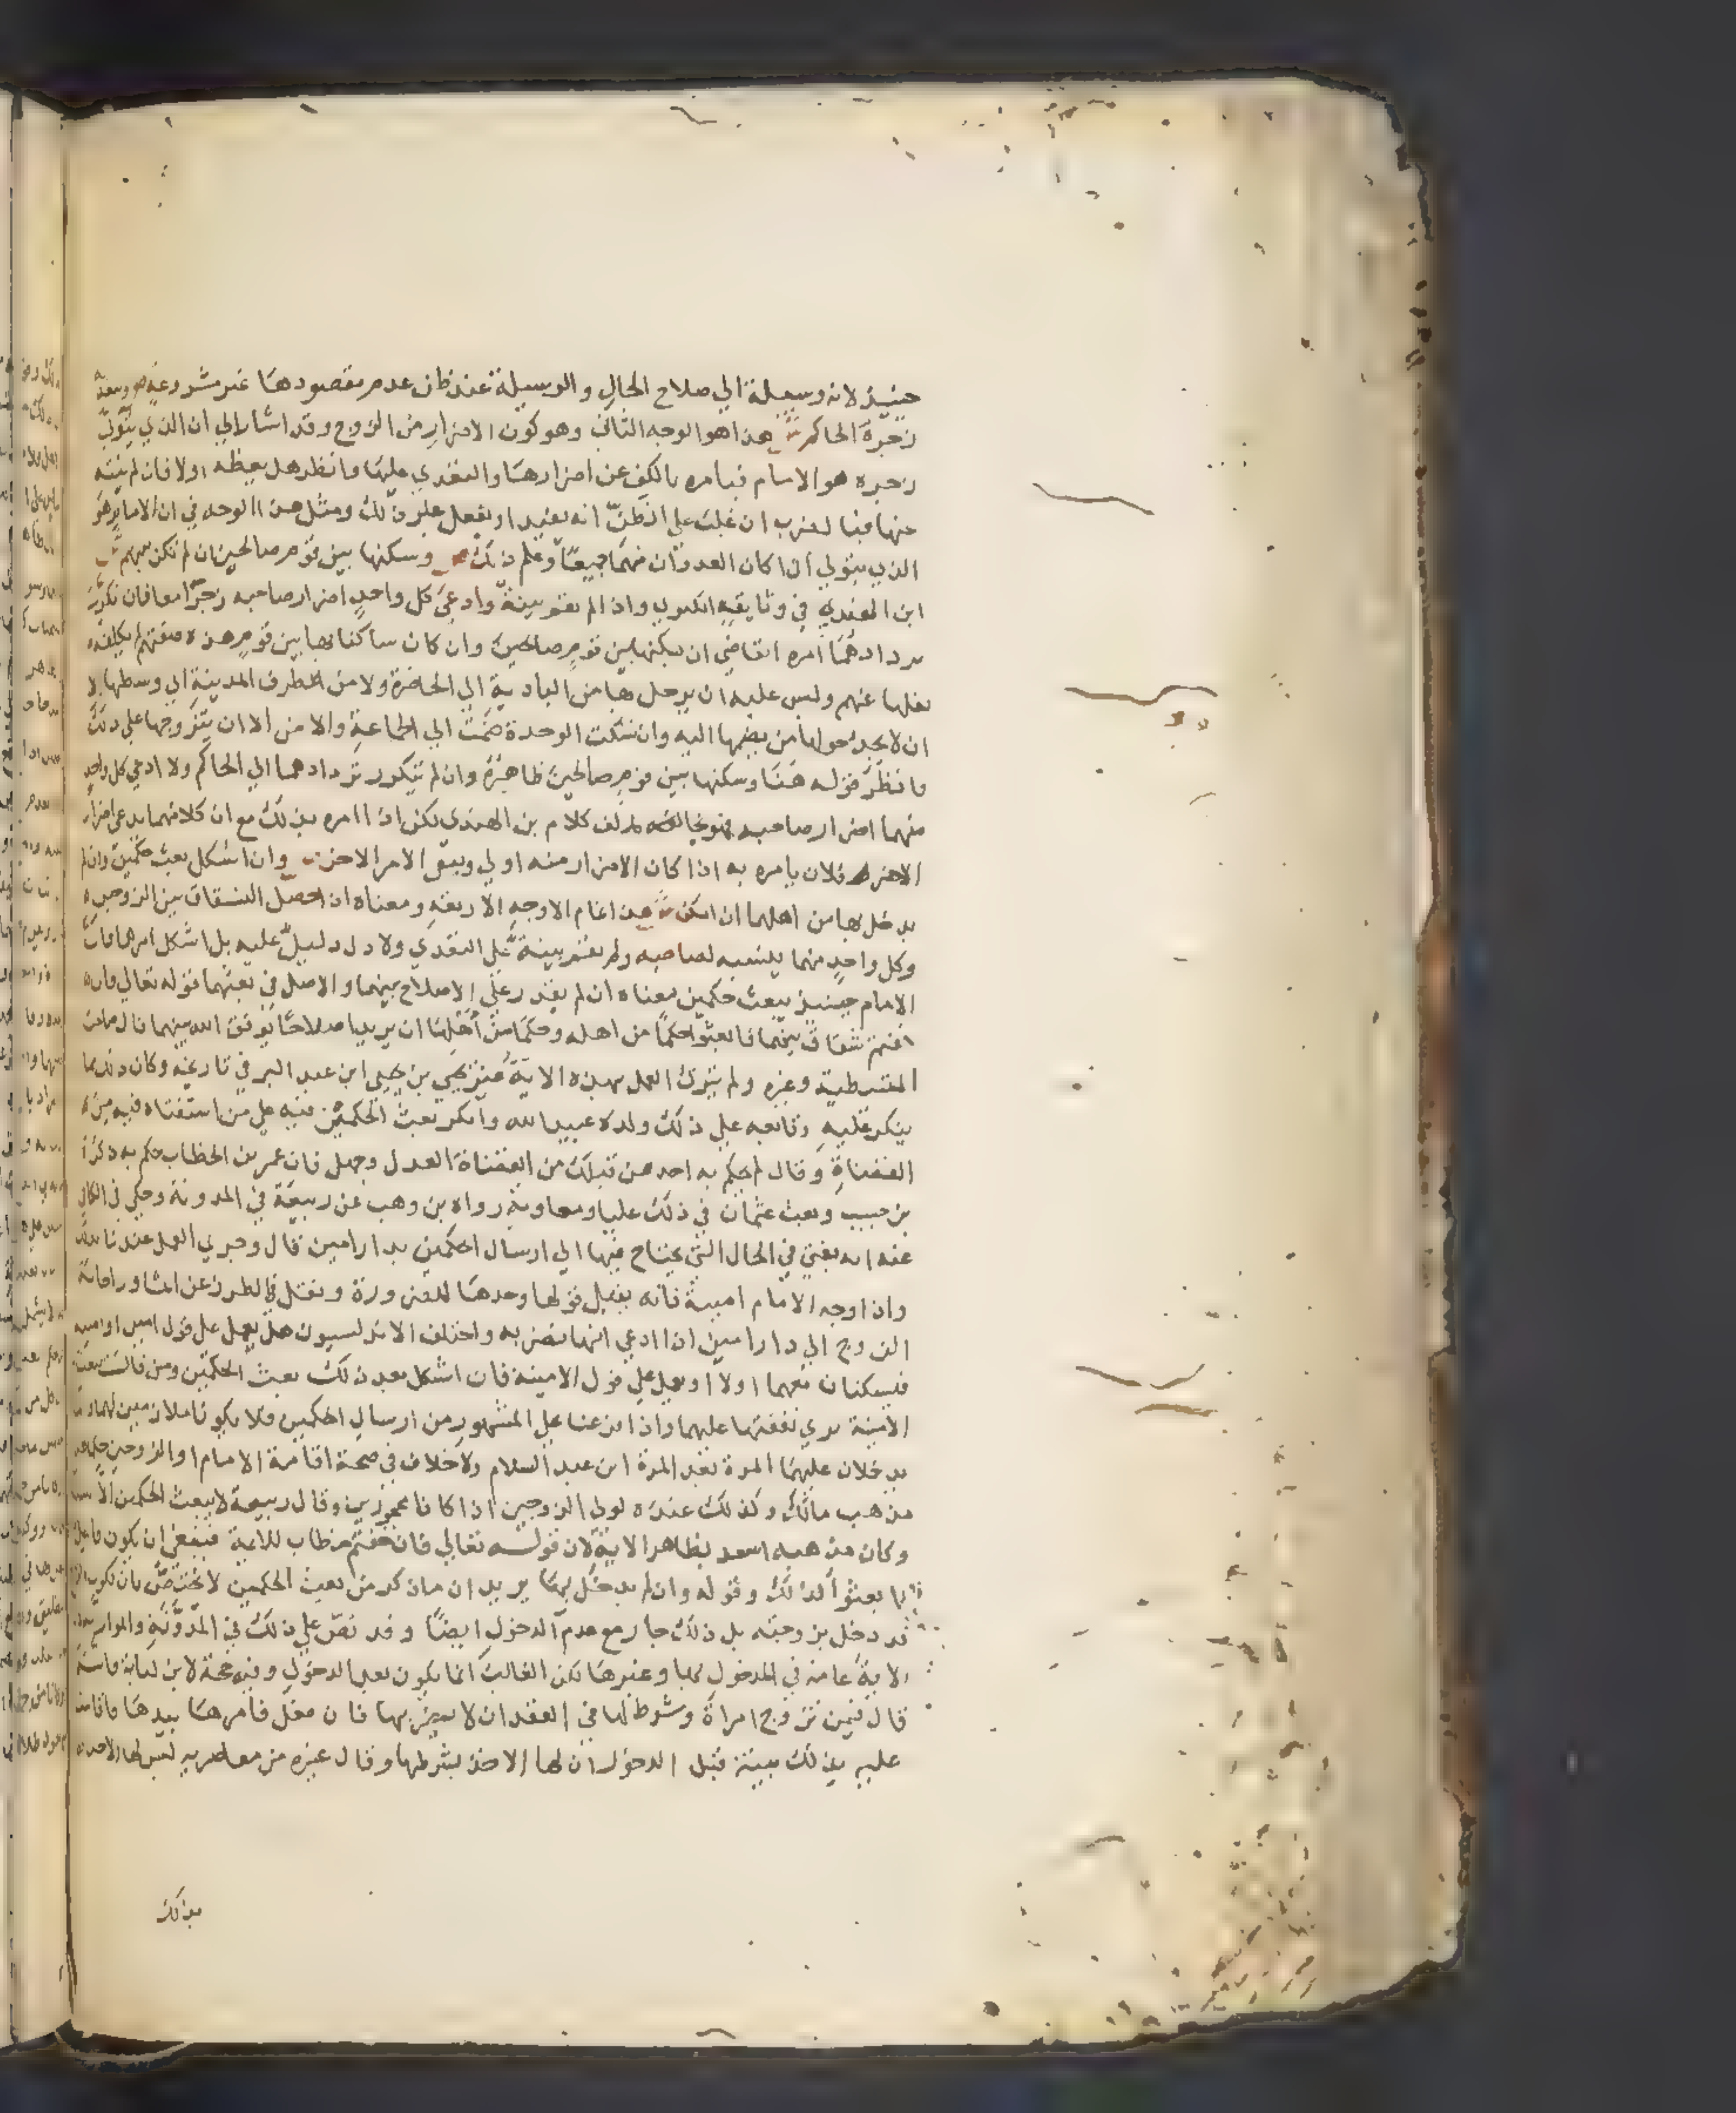 حينيذ لانه وسيلة الي صلاح الحال والوسيلة عند ظن عدم مقصودها غير مشروعة ص وبعده
زجره الحاكم ش هذا هو الوجه الثاني وهو كون الاضرار من الزوج وقد اشار الي ان الذي يتولي
زجره هو الامام فيامره بالكف عن اضرارها والتعدي عليها وانظر هل يعظه اولا فان لم ينته
عنها فبالضرب ان غلب علي الظن انه يفيد او يفعل غير ذلك ومثل هذا الوجه في ان الامام هو
الذي يتولي اذا كان العدوان منهما جميعا وعلم ذلك ص وسكنها بين قوم صالحين ان لم تكن بينهم ش
ابن الهندي في وثايقه الكبري واذا لم تقم بينة وادعي كل واحد اضرار صاحبه زجرا معا فان تكرر
تردادهما امره القاضي ان يسكنها بين قوم صالحين وان كان ساكنا بها بين قوم هذه صفتهم لم يكلفه
نقلها عنهم وليس عليه ان يرحل بها من البادية الي الحاضرة ولا من طرف المدينة الي وسطها الا
ان لا يجد حولها من يضمها اليه وان شكت الوحدة ضمت الي الجماعة والامن الا ان يتزوجها علي ذلك
وانظر قوله هنا وسكنها بين قوم صالحين ظاهره وان لم يتكرر تردادهما الي الحاكم ولا ادعي كل واحد
منهما اضرار صاحبه فهو مخالف لكلام بن الهندي لكن اذا امره بذلك مع ان كلا منهما يدعي اضرار
الاخر فلان يامره به اذا كان الاضرار منه اولي ويبقي الامر الاخر ص وان اشكل بعث حكمين وان لم
يدخل بها من اهلهما ان امكن ش هذا تمام الاوجه الاربعة ومعناه ان حصل الشقاق بين الزوجين
وكل واحد منهما ينسبه لصاحبه ولم تقم بينة علي التعدي ولا دل دليل عليه بل اشكل امرهما فان
الامام حينيذ يبعث حكمين معناه ان لم يقدر علي الاصلاح بينهما والاصل في بعثهما قوله تعالي وان
خفتم شقاق بينهما فابعثوا حكما من اهله وحكما من اهلها ان يريدا اصلاحا يوفق الله بينهما قال صاحب
المتيطية وغيره ولم يترك العمل بهذه الاية غير يحيي بن يحيي ابن عبد البر في تاريخه وكان ذلك مما
ينكر عليه وتابعه علي ذلك ولده عبيد الله وانكر بعث الحكمين فيه علي من استفتاه فيه من
القضاة وقال لم يحكم به احد من قبلك من القضاة العدل وجهل فان عمر بن الخطاب حكم به ذكره
بن حبيب وبعث عثمان في ذلك عليا ومعاوية رواه بن وهب عن ربيعة في المدونة وحكي في الكافي
عنه انه يفتي في الحال التي يحتاج فيها الي ارسال الحكمين بدار امين قال وجري العمل عندنا
واذا وجه الامام امينة فانه يقبل قولها وحدها للضرورة ونقل في الطرر عن المشاور اجابة
الزوج الي دار امين اذا ادعي انها تضر به واختلف الاندلسيون هل يعمل علي قول امين او امينة
فيسكنان معهما اولا او يعمل علي قول الامينة فان اشكل بعد ذلك بعث الحكمين ومن قال يبعث
الامينة يري نفقتها عليهما واذا فرعنا علي المشهور من ارسال الحكمين فلا يكونا ملازمين لهما وانما
يدخلان عليهما المرة بعد المرة ابن عبد السلام ولا خلاف في صحة اقامة الامام او الزوجين
مذهب مالك وكذلك عنده لولي الزوجين اذا كانا محجورين وقال ربيعة لا يبعث الحكمين الا السلطان
وكان مذهبه اسعد بظاهر الاية لان قوله تعالي فان خفتم خطاب للايمة فينبغي ان يكون فاعل
فابعثوا كذلك وقوله وان لم يدخل بها يريد ان ما ذكر من بعث الحكمين لا يختص بان يكون الزوج
قد دخل بزوجته بل ذلك جار مع عدم الدخول ايضا وقد نص علي ذلك في المدونة والموازية
الاية عامة في المدخول بها وغيرها لكن الغالب انما يكون بعد الدخول وفيه حجة لابن لبابة فانه
قال فيمن تزوج امراة وشرط لها في العقد ان لا يضر بها فان فعل فامرها بيدها فاقامت
عليه بذلك بينة قبل الدخول ان لها الاخذ بشرطها وقال غيره من معاصريه ليس لها الاخذ
بذلك